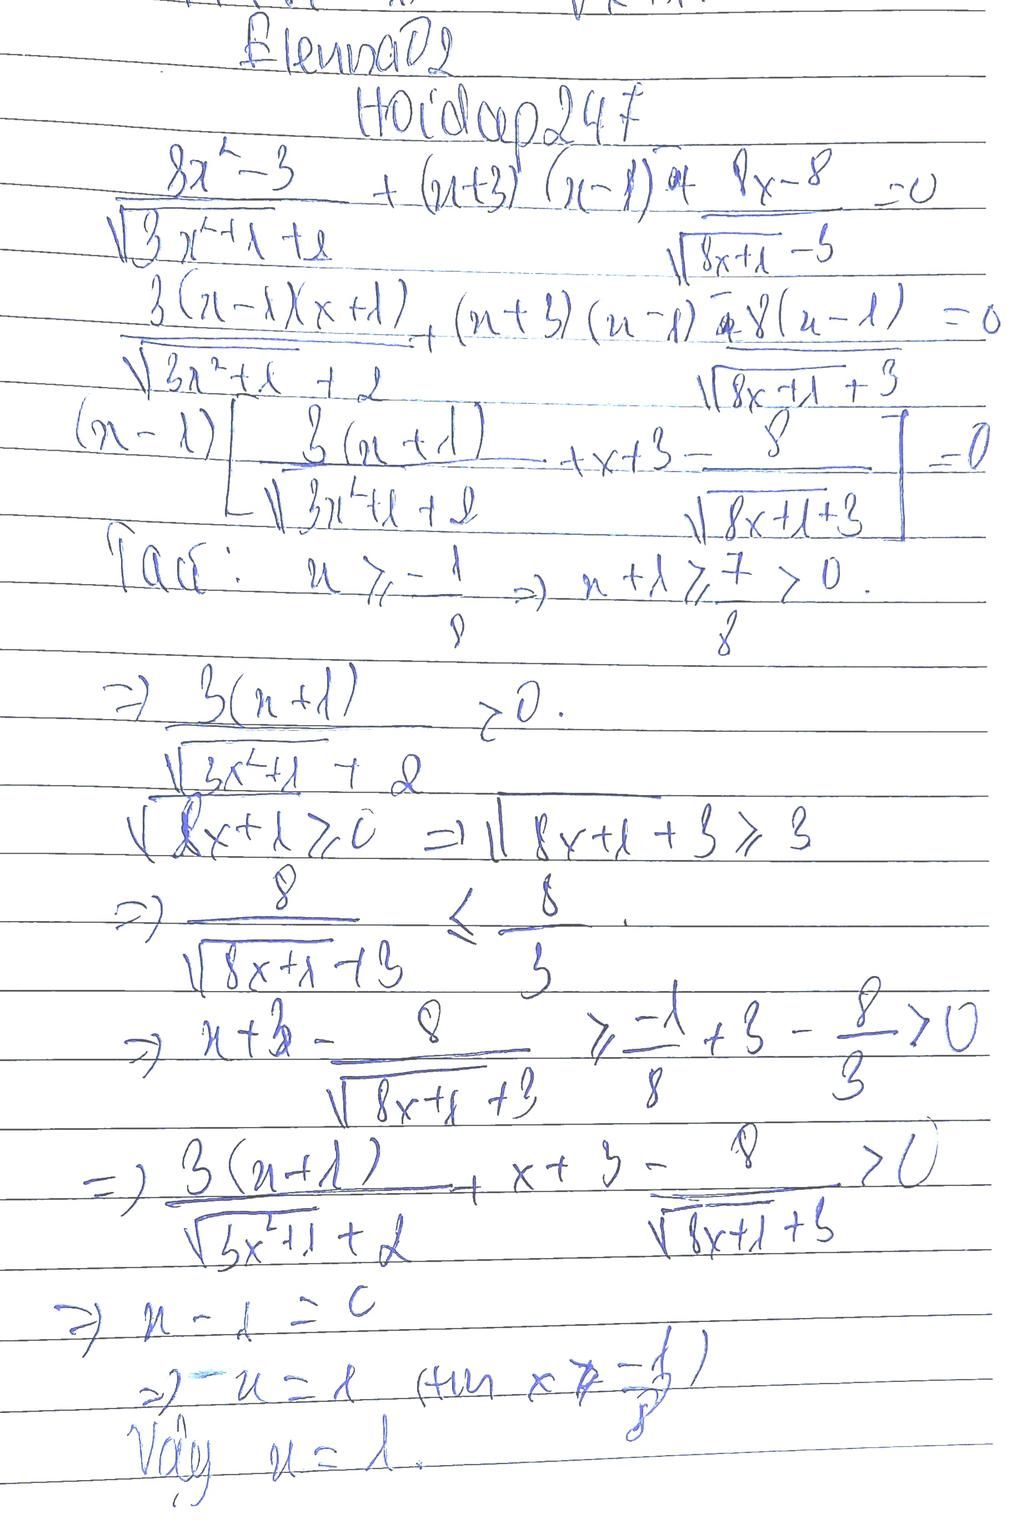 Elenna02
Hoidap247
(3x² - 3)/(√(3x²+1) + 2) + (x+3)(x-1) - (8x-8)/(√(8x+1) - 3) = 0
3(x-1)(x+1)/(√(3x²+1) + 2) + (x+3)(x-1) - 8(x-1)/(√(8x+1) + 3) = 0
(x-1)[3(x+1)/(√(3x²+1) + 2) + x+3 - 8/(√(8x+1)+3)] = 0
Ta có: x ≥ -1/8 => x+1 ≥ 7/8 > 0.
=> 3(x+1)/(√(3x²+1) + 2) > 0.
√(8x+1) ≥ 0 => √(8x+1) + 3 ≥ 3
=> 8/(√(8x+1) + 3) ≤ 8/3.
=> x+3 - 8/(√(8x+1) + 3) ≥ -1/8 + 3 - 8/3 > 0
=> 3(x+1)/(√(3x²+1) + 2) + x+3 - 8/(√(8x+1) + 3) > 0
=> x - 1 = 0
=> x = 1 (tm x ≥ -1/8)
Vậy x = 1.